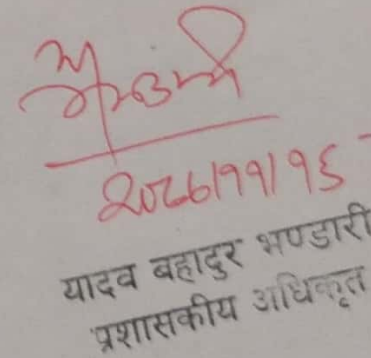 २०७७।११।१६
यादव बहादुर भण्डारी
प्रशासकीय अधिकृत